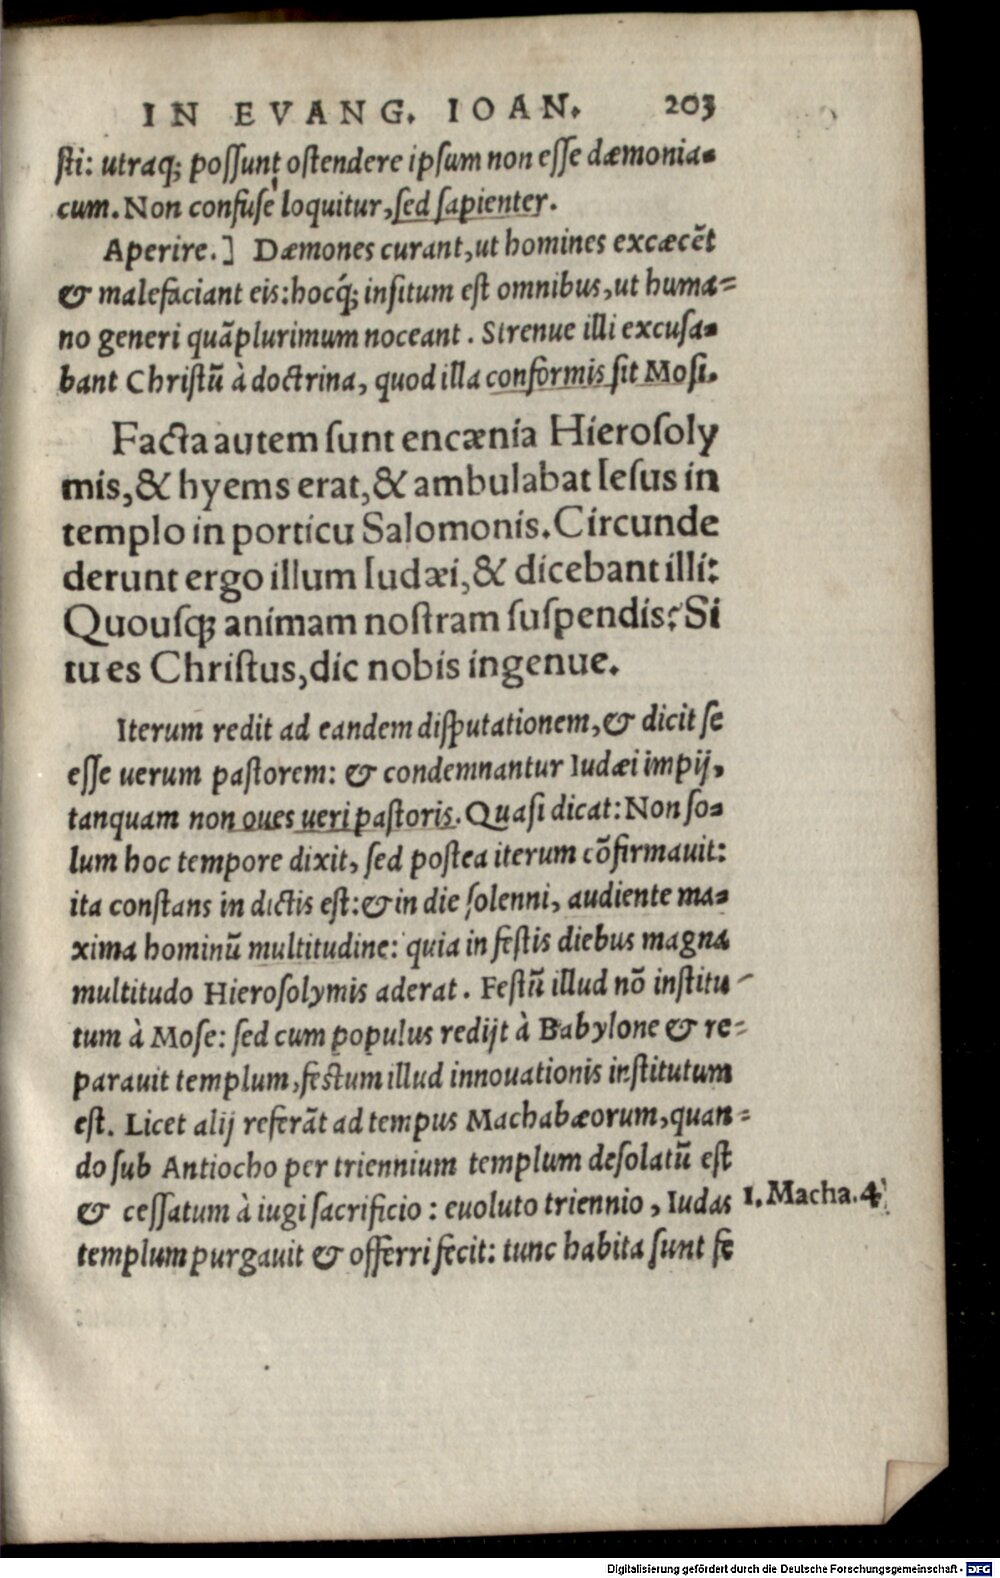 IN EVANG. IOAN. 203
ſti: utraq; poſſunt oſtendere ipſum non eſſe dæmonia-
cum. Non confuſe loquitur, ſed ſapienter.
Aperire.] Dæmones curant, ut homines excæcẽt
& malefaciant eis: hocq́; inſitum eſt omnibus, ut huma-
no generi quãplurimum noceant. Strenue illi excuſa-
bant Chriſtũ à doctrina, quod illa conformis ſit Moſi.
Facta autem ſunt encænia Hieroſoly
mis, & hyems erat, & ambulabat Ieſus in
templo in porticu Salomonis. Circunde
derunt ergo illum Iudæi, & dicebant illi:
Quouſq; animam noſtram ſuſpendis? Si
tu es Chriſtus, dic nobis ingenue.
Iterum redit ad eandem diſputationem, & dicit ſe
eſſe uerum paſtorem: & condemnantur Iudæi impij,
tanquam non oues ueri paſtoris. Quaſi dicat: Non ſo-
lum hoc tempore dixit, ſed poſtea iterum cõfirmauit:
ita conſtans in dictis eſt: & in die ſolenni, audiente ma-
xima hominũ multitudine: quia in feſtis diebus magna
multitudo Hieroſolymis aderat. Feſtũ illud nõ inſtitu-
tum à Moſe: ſed cum populus redijt à Babylone & re-
parauit templum, feſtum illud innouationis inſtitutum
eſt. Licet alij referãt ad tempus Machabæorum, quan-
do ſub Antiocho per triennium templum deſolatũ eſt
& ceſſatum à iugi ſacrificio: euoluto triennio, Iudas 1. Macha. 4.
templum purgauit & offerri fecit: tunc habita ſunt fe
Digitalisierung gefördert durch die Deutsche Forschungsgemeinschaft - DFG